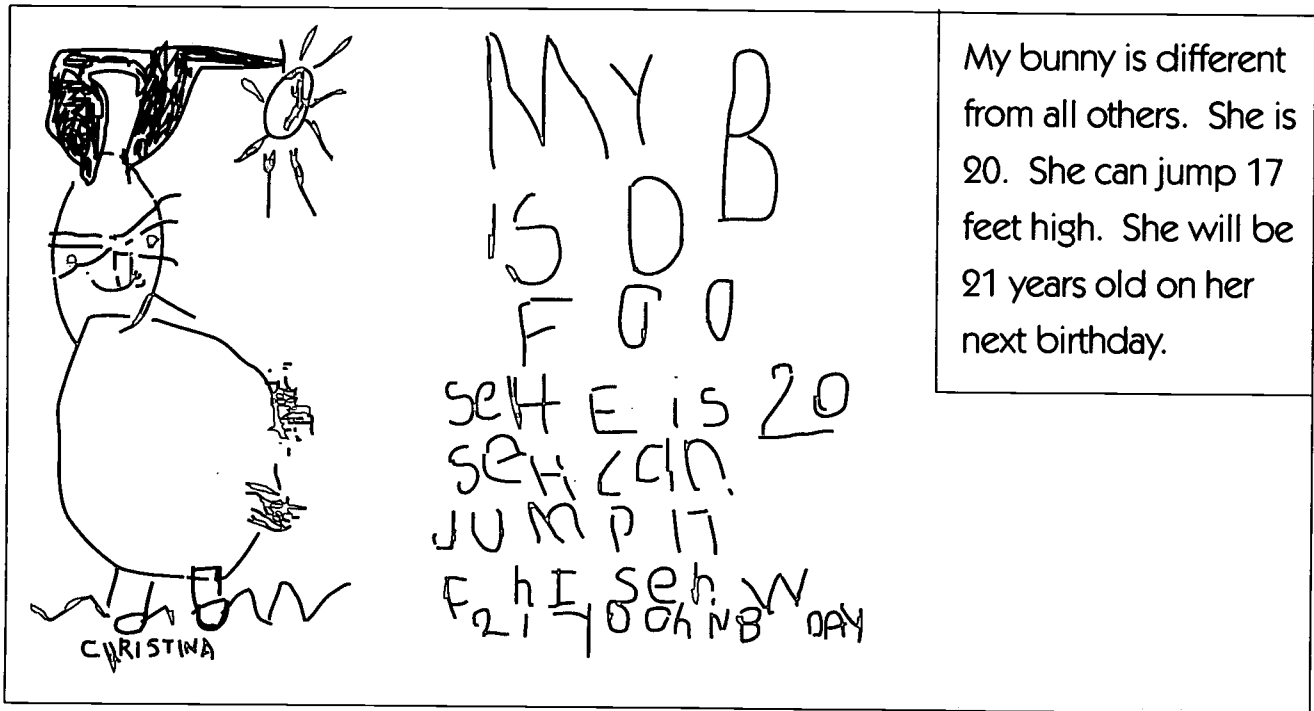 MY B
IS D
F A O
SeH E is 20
SeH can
JUMP 17
F hI Seh W
21 YO Oh NB DAY
CHRISTINA
My bunny is different
from all others. She is
20. She can jump 17
feet high. She will be
21 years old on her
next birthday.